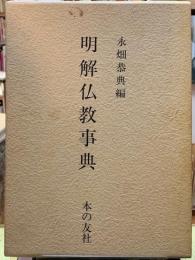 永畑恭典編
明解仏教事典
本の友社